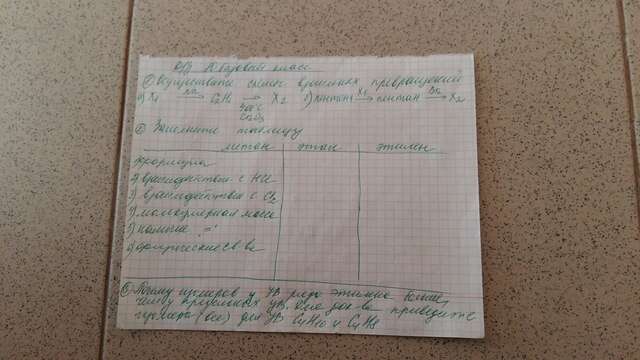 Д/З А базовый класс
① Осуществите схемы цепочки превращений
а) X₁ –Na→ C₂H₆ –400°C Cr₂O₃→ X₂ б) пентан –X₁→ пентан –Br₂→ X₂
② Заполните таблицу
метан этан этилен
1) формула
2) взаимодействие с HCl
3) взаимодействие с Cl₂
4) молекулярная масса
5) наличие "="
6) физические св-ва
③ Почему изомеров у УВ ряда этилена больше,
чему предельных УВ. Для док-ва приведите
изомеры (все) для УВ C₄H₁₀ и C₄H₈